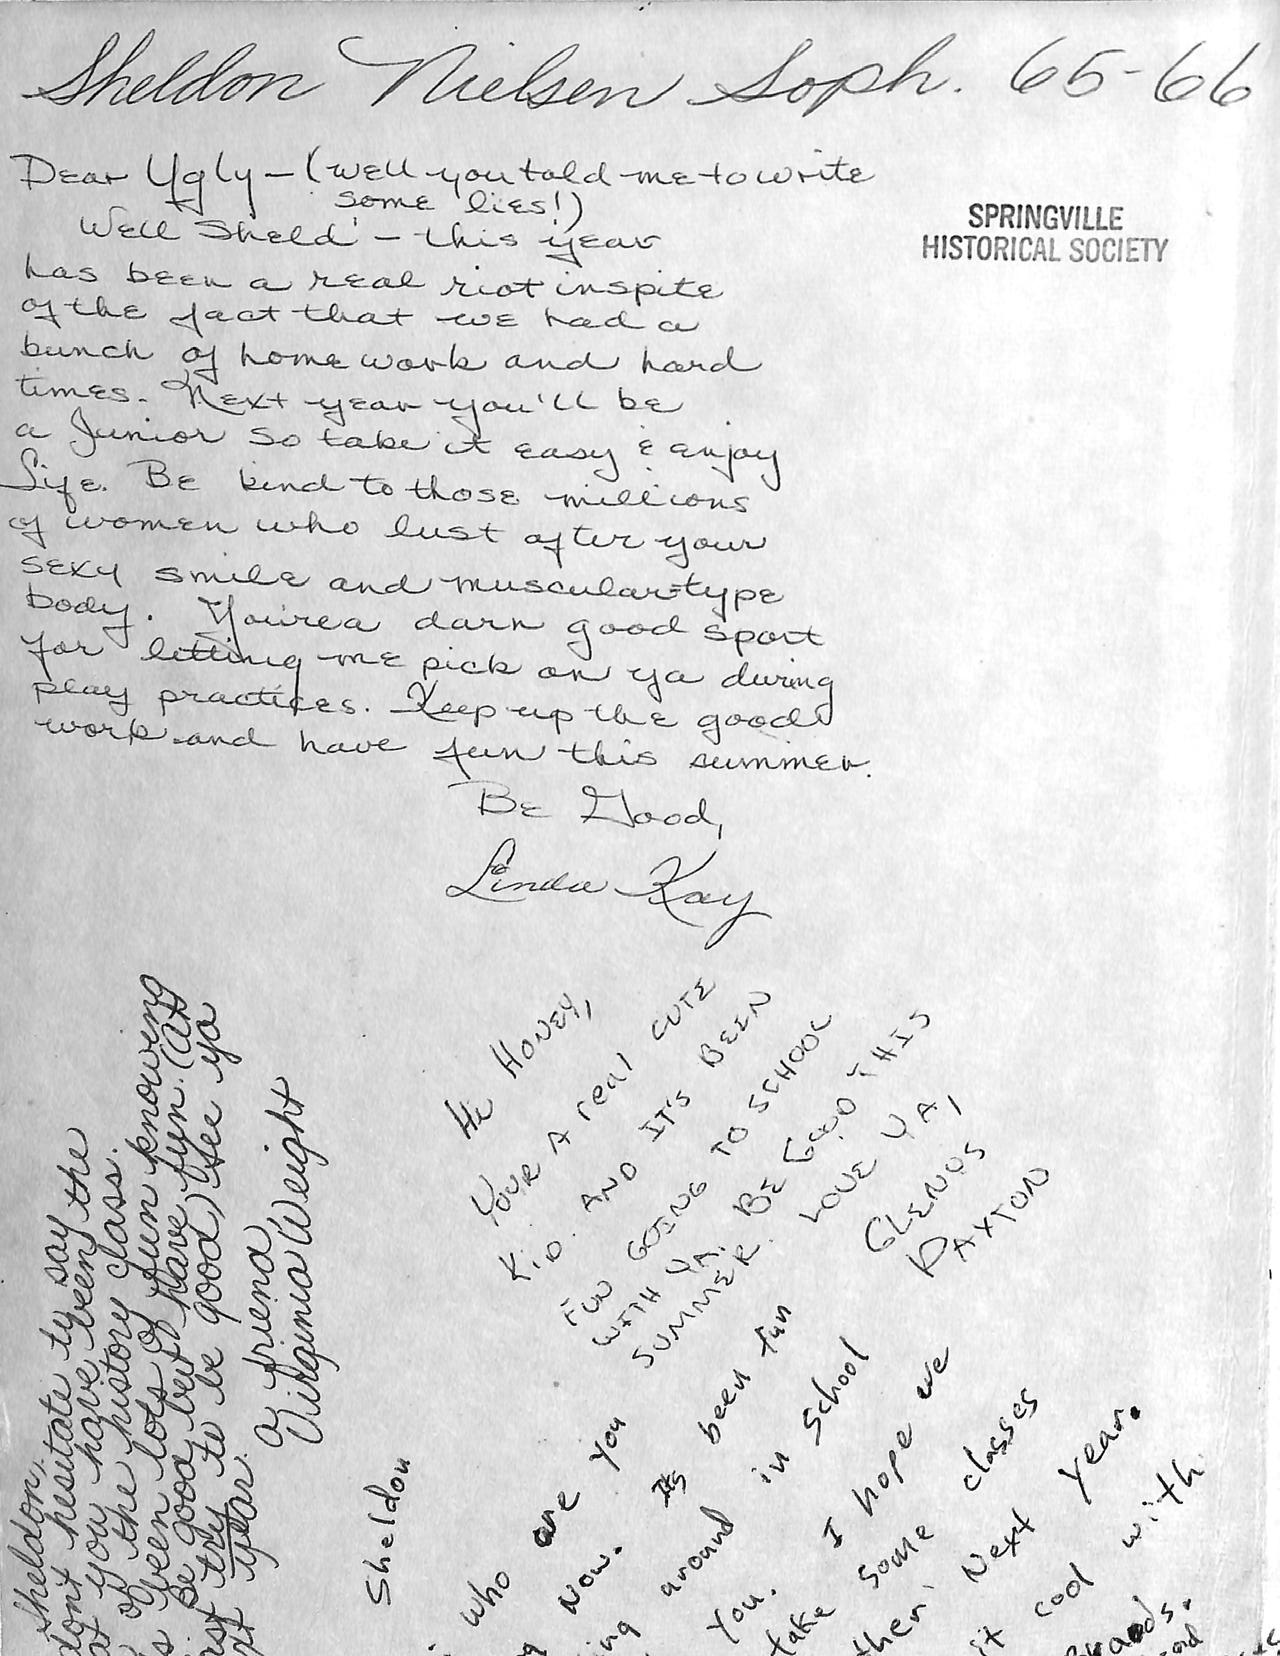 Sheldon Nielsen Soph. 65-66
Dear Ugly — (well you told me to write
some lies!)
SPRINGVILLE
HISTORICAL SOCIETY
Well Sheld' — this year
has been a real riot inspite
of the fact that we had a
bunch of homework and hard
times. Next year you'll be
a Junior so take it easy & enjoy
Life. Be kind to those millions
of women who lust after your
sexy smile and muscular-type
body. You're a darn good sport
for letting me pick on ya during
play practices. Keep up the good
work and have fun this summer.
Be Good,
Linda Kay
Sheldon,
don't hesitate to say the
at you have been
of the history class.
s been lots of fun knowing
Be good but have fun. (At
rst try to be good) See ya
xt year.
a friend
Virginia Weight
Hi Honey,
Your a real cute
kid. And it's been
fun going to school
with ya. Be good this
summer. Love ya,
Glenos
Paxton
Sheldon
who are you
now. Its been fun
ing around in School
you. I hope we
take some classes
ther next year.
it cool with